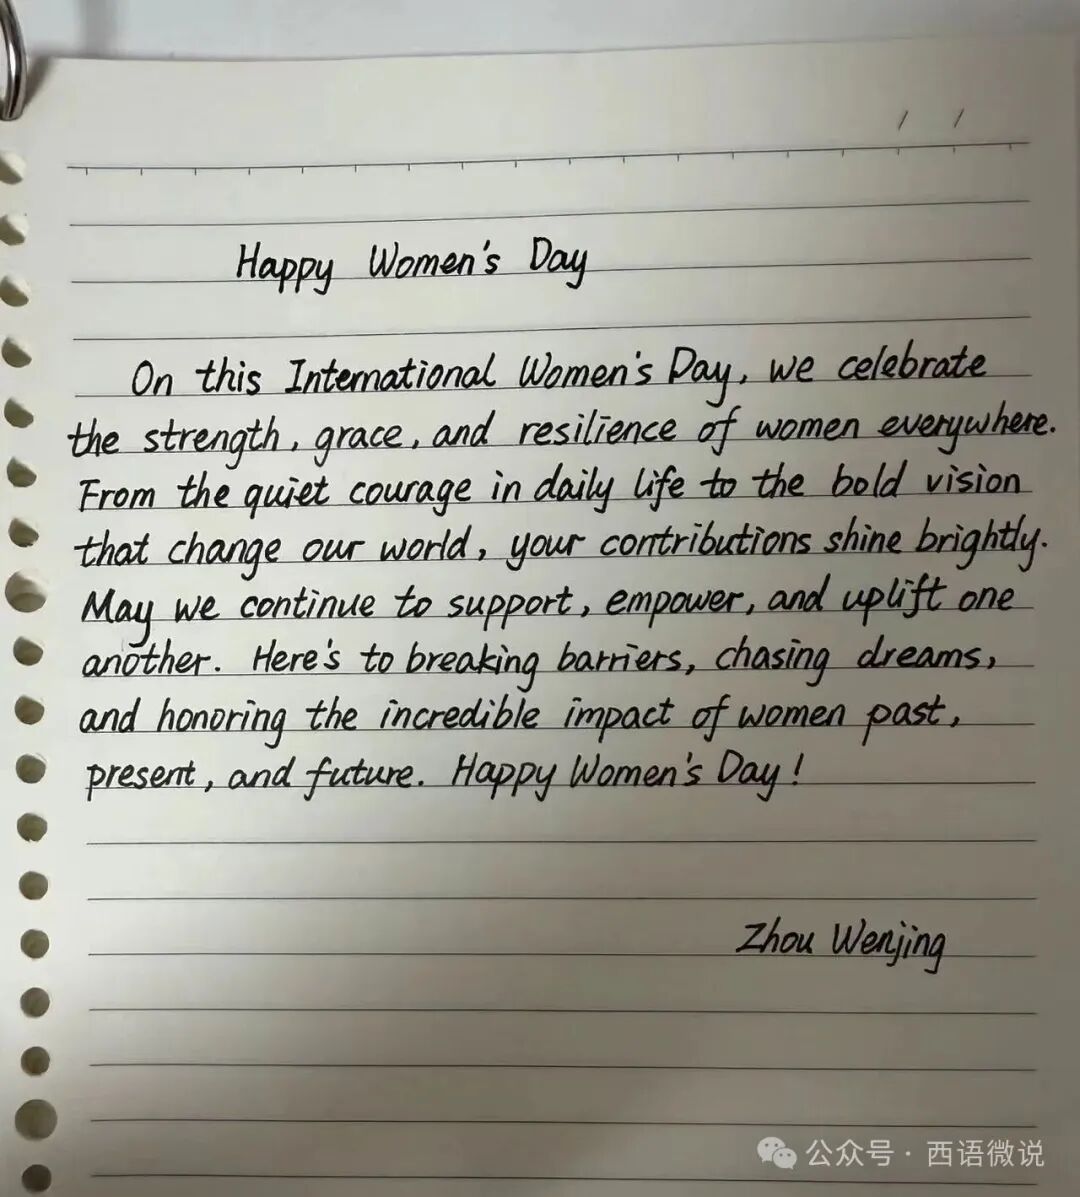 / /
Happy Women's Day
On this International Women's Day, we celebrate
the strength, grace, and resilience of women everywhere.
From the quiet courage in daily life to the bold vision
that change our world, your contributions shine brightly.
May we continue to support, empower, and uplift one
another. Here's to breaking barriers, chasing dreams,
and honoring the incredible impact of women past,
present, and future. Happy Women's Day!
Zhou Wenjing
公众号·西语微说